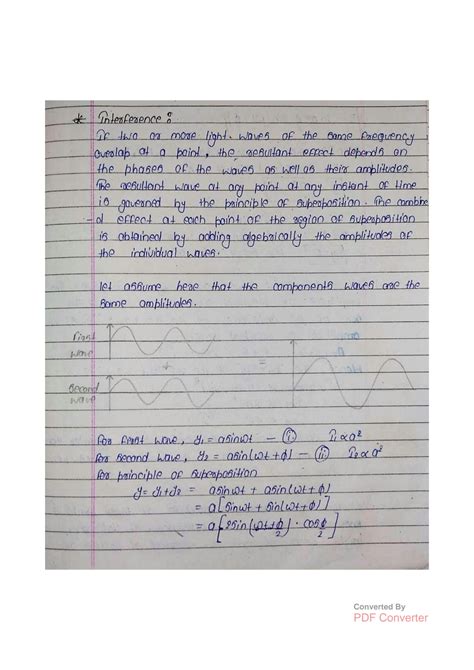 * Interference :
If two or more light waves of the same frequency
overlap at a point, the resultant effect depends on
the phases of the waves as well as their amplitudes.
The resultant wave at any point at any instant of time
is governed by the principle of superposition. The combine
-d effect at each point of the region of superposition
is obtained by adding algebrically the amplitudes of
the individual waves.
let assume here that the components waves are the
same amplitudes.
First
wave
+
=
Second
wave
for first wave, y₁ = asinωt — (i) I₁ ∝ a²
for second wave, y₂ = asin(ωt + ϕ) — (ii) I₂ ∝ a²
for principle of superposition
y = y₁+y₂ = asinωt + asin(ωt + ϕ)
= a[sinωt + sin(ωt + ϕ)]
= a[2sin(ωt+ϕ/2) · cosϕ/2]
Converted By
PDF Converter